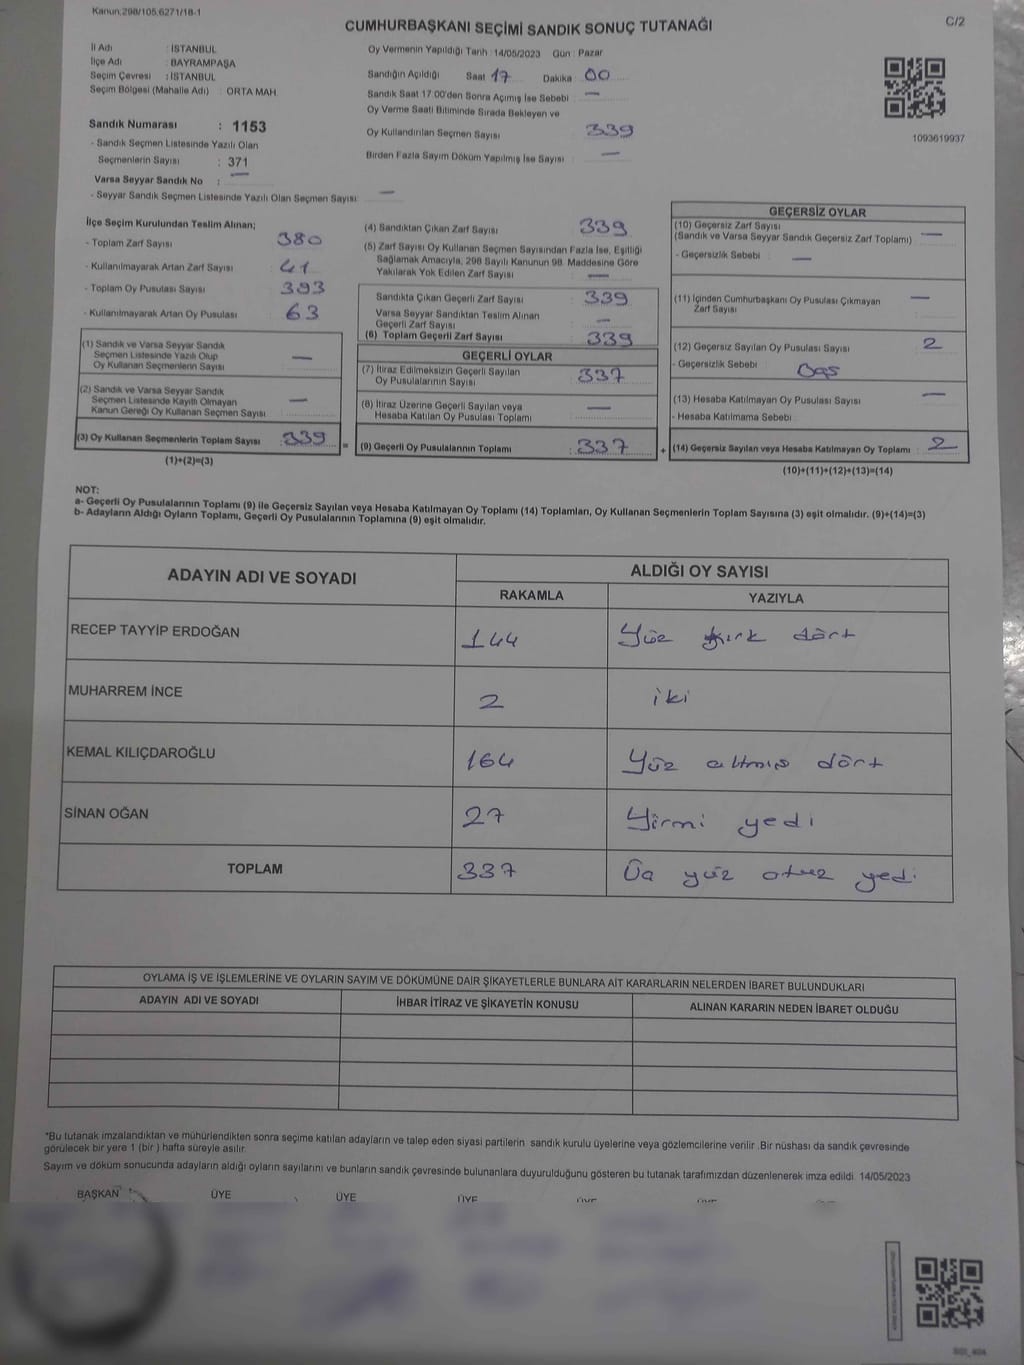 Kanun.298/105.6271/18-1
CUMHURBAŞKANI SEÇİMİ SANDIK SONUÇ TUTANAĞI
C/2
İl Adı : İSTANBUL
İlçe Adı : BAYRAMPAŞA
Seçim Çevresi : İSTANBUL
Seçim Bölgesi (Mahalle Adı) : ORTA MAH.
Sandık Numarası : 1153
- Sandık Seçmen Listesinde Yazılı Olan
Seçmenlerin Sayısı : 371
Varsa Seyyar Sandık No : —
- Seyyar Sandık Seçmen Listesinde Yazılı Olan Seçmen Sayısı: —
Oy Vermenin Yapıldığı Tarih : 14/05/2023 Gün : Pazar
Sandığın Açıldığı Saat 17 Dakika 00
Sandık Saat 17.00'den Sonra Açımış İse Sebebi : —
Oy Verme Saati Bitiminde Sırada Bekleyen ve
Oy Kullandırılan Seçmen Sayısı : 339
Birden Fazla Sayım Döküm Yapılmış İse Sayısı : —
1093619937
İlçe Seçim Kurulundan Teslim Alınan;
- Toplam Zarf Sayısı : 380
- Kullanılmayarak Artan Zarf Sayısı : 41
- Toplam Oy Pusulası Sayısı : 393
- Kullanılmayarak Artan Oy Pusulası : 63
(1) Sandık ve Varsa Seyyar Sandık
Seçmen Listesinde Yazılı Olup
Oy Kullanan Seçmenlerin Sayısı : —
(2) Sandık ve Varsa Seyyar Sandık
Seçmen Listesinde Kayıtlı Olmayan
Kanun Gereği Oy Kullanan Seçmen Sayısı : —
(3) Oy Kullanan Seçmenlerin Toplam Sayısı : 339 =
(1)+(2)=(3)
(4) Sandıktan Çıkan Zarf Sayısı : 339
(5) Zarf Sayısı Oy Kullanan Seçmen Sayısından Fazla İse, Eşitliği
Sağlamak Amacıyla, 298 Sayılı Kanunun 98. Maddesine Göre
Yakılarak Yok Edilen Zarf Sayısı : —
Sandıkta Çıkan Geçerli Zarf Sayısı : 339
Varsa Seyyar Sandıktan Teslim Alınan
Geçerli Zarf Sayısı : —
(6) Toplam Geçerli Zarf Sayısı : 339
GEÇERLİ OYLAR
(7) İtiraz Edilmeksizin Geçerli Sayılan
Oy Pusulalarının Sayısı : 337
(8) İtiraz Üzerine Geçerli Sayılan veya
Hesaba Katılan Oy Pusulası Toplamı : —
(9) Geçerli Oy Pusulalarının Toplamı : 337 +
GEÇERSİZ OYLAR
(10) Geçersiz Zarf Sayısı
(Sandık ve Varsa Seyyar Sandık Geçersiz Zarf Toplamı) : —
- Geçersizlik Sebebi : —
(11) İçinden Cumhurbaşkanı Oy Pusulası Çıkmayan
Zarf Sayısı : —
(12) Geçersiz Sayılan Oy Pusulası Sayısı : 2
- Geçersizlik Sebebi : Boş
(13) Hesaba Katılmayan Oy Pusulası Sayısı : —
- Hesaba Katılmama Sebebi :
(14) Geçersiz Sayılan veya Hesaba Katılmayan Oy Toplamı : 2
(10)+(11)+(12)+(13)=(14)
NOT:
a- Geçerli Oy Pusulalarının Toplamı (9) ile Geçersiz Sayılan veya Hesaba Katılmayan Oy Toplamı (14) Toplamları, Oy Kullanan Seçmenlerin Toplam Sayısına (3) eşit olmalıdır. (9)+(14)=(3)
b- Adayların Aldığı Oyların Toplamı, Geçerli Oy Pusulalarının Toplamına (9) eşit olmalıdır.
ADAYIN ADI VE SOYADI
ALDIĞI OY SAYISI
RAKAMLA YAZIYLA
RECEP TAYYİP ERDOĞAN 144 Yüz kırk dört
MUHARREM İNCE 2 iki
KEMAL KILIÇDAROĞLU 164 Yüz altmış dört
SİNAN OĞAN 27 Yirmi yedi
TOPLAM 337 Üç yüz otuz yedi
OYLAMA İŞ VE İŞLEMLERİNE VE OYLARIN SAYIM VE DÖKÜMÜNE DAİR ŞİKAYETLERLE BUNLARA AİT KARARLARIN NELERDEN İBARET BULUNDUKLARI
ADAYIN ADI VE SOYADI İHBAR İTİRAZ VE ŞİKAYETİN KONUSU ALINAN KARARIN NEDEN İBARET OLDUĞU
*Bu tutanak imzalandıktan ve mühürlendikten sonra seçime katılan adayların ve talep eden siyasi partilerin sandık kurulu üyelerine veya gözlemcilerine verilir .Bir nüshası da sandık çevresinde
görülecek bir yere 1 (bir ) hafta süreyle asılır.
Sayım ve döküm sonucunda adayların aldığı oyların sayılarını ve bunların sandık çevresinde bulunanlara duyurulduğunu gösteren bu tutanak tarafımızdan düzenlenerek imza edildi. 14/05/2023
BAŞKAN ÜYE ÜYE ÜYE